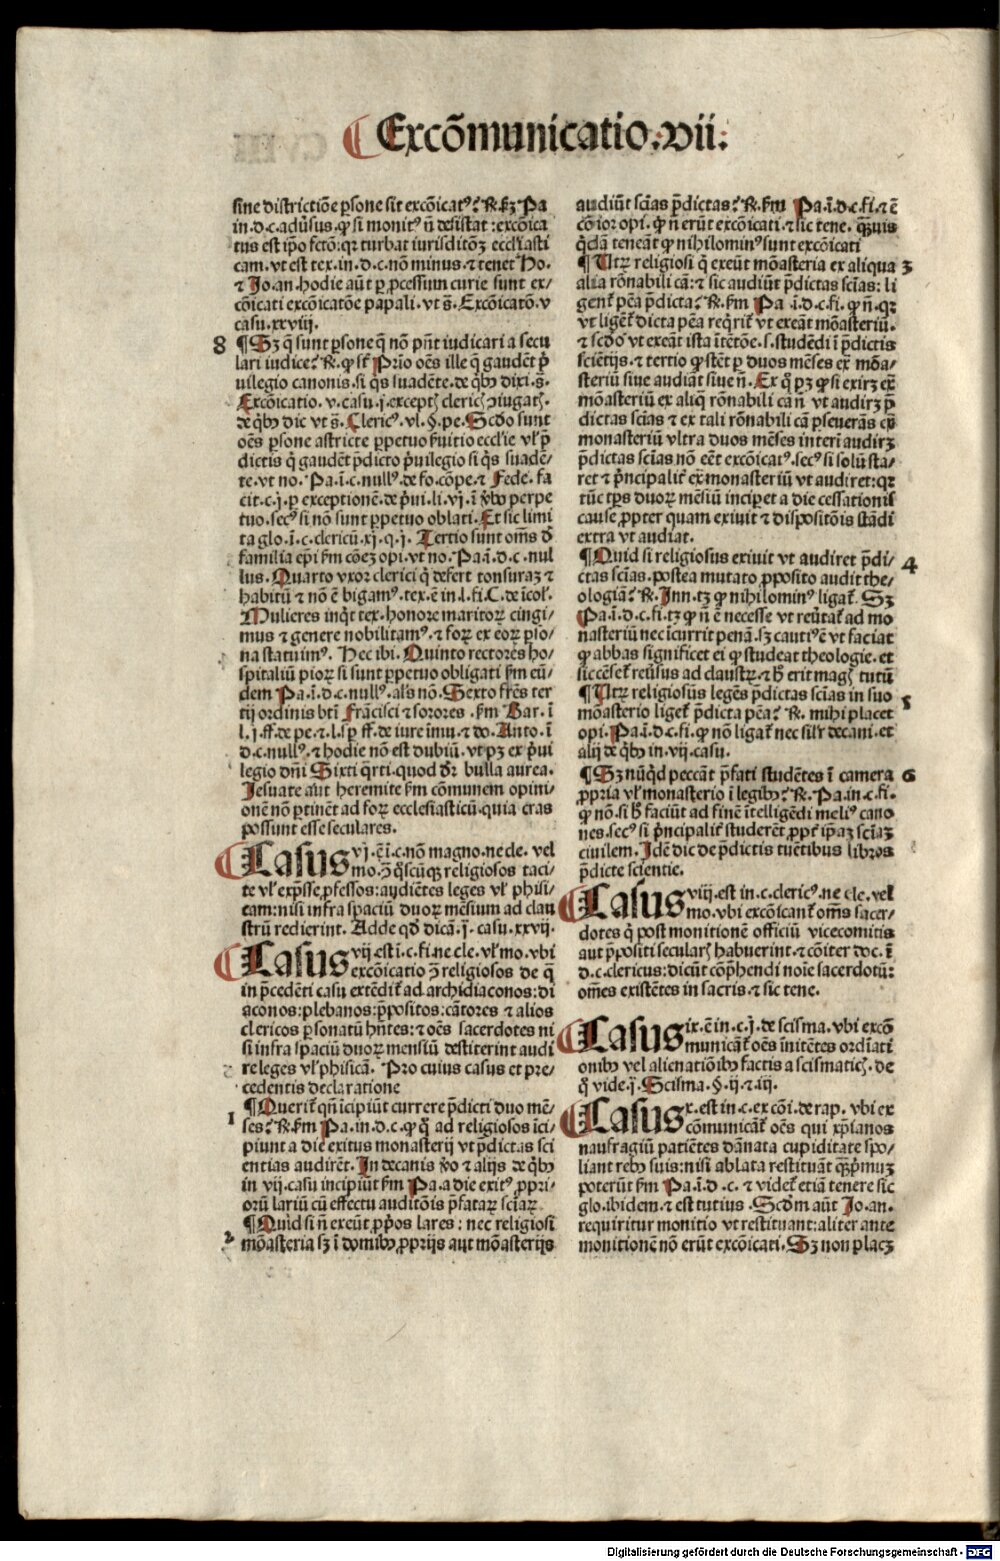 Excōmunicatio.vii.
sine districtiōe ꝑsone sit excōicatꝰ? R. ꝫ Pa
in.d.c.adūsus.ꝙ si monitꝰ ñ desistat:excōica
tus est ip̄o fctō:qꝛ turbat iurisditōꝫ eccl'iasti
cam.vt est tex.in.d.c.nō minus.⁊ tenet Ho.
⁊ Jo.an.hodie aūt ꝑ ꝓcessum curie sunt ex/
cōicati excōicatōe papali.vt s̄. Excōicatō.v
casu.xxviij.
8 ¶Sꝫ q̄ sunt ꝑsone q̄ nō pn̄t iudicari a secu
lari iudice? R. ꝙ st' Prīo oēs ille q̄ gaudēt p̄
uilegio canonis.si q̄s suadēte.de qb' dixi.s̄.
Excōicatio.v.casu.j.except' cleric' ꝯiugat'.
de qb' dic vt s̄. Clericꝰ.vl.§.pe. Scd̄o sunt
oēs ꝑsone astricte ꝑpetuo ẜuitio eccl'ie vl' p̄
dictis q̄ gaudēt p̄dicto p̄uilegio si q̄s suadē/
te.vt no. Pa.ī.c.nullꝰ.de fo.cōpe.⁊ Fede. fa
cit.c.j.ꝑ exceptionē.de p̄ui.li.vj.ī v̄bo perpe
tuo.secꝰ si nō sunt ꝑpetuo oblati. Et sic limi
ta glo.ī.c.clericū.xj.q.j. Tertio sunt om̄s d̄
familia ep̄i ẜm cōeꝫ opi.vt no. Pa.ī.d.c.nul
lus. Quarto vxoꝛ clerici q̄ defert tonsuraꝫ ⁊
habitū ⁊ nō ē bigamꝰ.tex.ē in.l.fi.C.de īcol'.
Mulieres inq̄t tex.honore maritoꝝ cingi/
mus ⁊ genere nobilitamꝰ.⁊ foꝝ ex eoꝝ ꝑso/
na statuimꝰ. Hec ibi. Quinto rectores ho/
spitaliū pioꝝ si sunt ꝑpetuo obligati ẜm eū/
dem Pa.ī.d.c.nullꝰ.al's nō. Sexto fr̄es ter
tij ordinis btī Frācisci ⁊ sorores.ẜm Bar. ī
l.j.ff.de pe.⁊.l.sp̄ ff.de iure īmu.⁊ do. Anto.ī
d.c.nullꝰ.⁊ hodie nō est dubiū.vt pꝫ ex p̄ui
legio dn̄i Sixti q̄rti.quod dr̄ bulla aurea.
Jesuate aūt heremite ẜm cōmunem opini/
onē nō ꝑtinēt ad foꝝ ecclesiasticū.quia cras
possunt esse seculares.
Casus vj.ē ī.c.nō magno.ne cle. vel
mo.ꝯ̄ q̄scūqꝫ religiosos taci/
te vl' exp̄sse ꝓfessos:audiētes leges vl' phisi/
cam:nisi infra spaciū duoꝝ mēsium ad clau
strū redierint. Adde qd̄ dicā.j̄.casu.xxvij.
Casus vij est ī.c.fi.ne cle. vl' mo.vbi
excōicatio ꝯ̄ religiosos de q̄
in p̄cedēti casu extēdit' ad archidiaconos:di
aconos:plebanos:p̄positos:cātores ⁊ alios
clericos ꝑsonatū hn̄tes:⁊ oēs sacerdotes ni
si infra spaciū duoꝝ mensiū destiterint audi
re leges vl' phisicā. Pro cuius casus et pre/
cedentis declaratione
1 ¶Querit' qn̄ īcipiūt currere p̄dicti duo mē/
ses? R. ẜm Pa.in.d.c.ꝙ q̄ ad religiosos īci/
piunt a die exitus monasterij vt p̄dictas sci
entias audirēt. In decanis v̄o ⁊ alijs de qb'
in vij casu incipiūt ẜm Pa.a die exitꝰ ꝓpri/
oꝝ lariū cū effectu auditōis p̄fataꝝ sciaꝝ.
2 ¶Quid si ñ exeūt ꝓp̄os lares: nec religiosi
mōasteria sꝫ ī domib' ꝓprijs aut mōasterijs
audiūt sciās p̄dictas? R. ẜm Pa.ī.d.c.fi.⁊ ē
cōioꝛ opi. ꝙ ñ erūt excōicati.⁊ sic tene. q̄uis
q̄dā teneāt ꝙ nihilominꝰ sunt excōicati
3 ¶Utꝝ religiosi q̄ exeūt mōasteria ex aliqua
alia rōnabili cā:⁊ sic audiūt p̄dictas sciās: li
gent' pēa p̄dicta? R. ẜm Pa ī.d.c.fi.ꝙ ñ.qꝛ
vt liget' dicta pēa req̄rit' vt exeāt mōasteriū.
⁊ scd̄o vt exeāt ista ītētōe.s.studēdi ī p̄dictis
sciētijs.⁊ tertio ꝙ stēt ꝑ duos mēses ex̄ mōa/
steriū siue audiāt siue ñ. Ex q̄ pꝫ ꝙ si exirꝫ ex̄
mōasteriū ex aliq̄ rōnabili cā ñ vt audirꝫ p̄
dictas sciās ⁊ ex tali rōnabili cā ꝑseuerās ex̄
monasteriū vltra duos mēses interī audirꝫ
p̄dictas sciās nō eēt excōicatꝰ.secꝰ si solū sta/
ret ⁊ p̄ncipalit' ex̄ monasteriū vt audiret:qꝛ
tūc tp̄s duoꝝ mēsiū incipet a die cessationis
cause ꝓpter quam exiuit ⁊ dispositōis stādi
extra vt audiat.
4 ¶Quid si religiosus exiuit vt audiret p̄di/
ctas sciās.postea mutato ꝓposito audit the/
ologiā? R. Inn.tꝫ ꝙ nihilominꝰ ligat'. Sꝫ
Pa.ī.d.c.fi.tꝫ ꝙ ñ ē necesse vt reūtat' ad mo
nasteriū nec īcurrit penā.sꝫ cautiꝰ ē vt faciat
ꝙ abbas significet ei ꝙ studeat theologie.et
sic cēset' reūsus ad claustꝝ.⁊ h̄ erit mag' tutū
5 ¶Utꝝ religiosūs legēs p̄dictas sciās in suo
mōasterio liget' p̄dicta pēa? R. mihi placet
opi. Pa.ī.d.c.fi.ꝙ nō ligat' nec silr' decani.et
alij de qb' in.vij.casu.
6 ¶Sꝫ nūq̄d peccāt p̄fati studētes ī camera
ꝓpria vl' monasterio ī legib'? R. Pa.in.c.fi.
ꝙ nō.si h̄ faciūt ad finē ītelligēdi meliꝰ cano
nes.secꝰ si p̄ncipalit' studerēt ꝓpt' ip̄aꝫ sciaꝫ
ciuilem. Idē dic de p̄dictis tuētibus libros
p̄dicte scientie.
Casus viij.est in.c.clericꝰ.ne cle.vel
mo.vbi excōicant' om̄s sacer/
dotes q̄ post monitionē officiū vicecomitis
aut p̄positi secular' habuerint.⁊ cōiter doc. ī
d.c.clericus:dicūt cōp̄hendi noīe sacerdotū:
om̄es existētes in sacris.⁊ sic tene.
Casus ix.ē in.c.j.de scisma.vbi excō
municāt' oēs īnitētes ordīati
onib' vel alienatiōib' factis a scismatic'.de
q̄ vide.j̄. Scisma.§.ij.⁊ iij.
Casus x.est in.c.excōi.de rap. vbi ex
cōmunicāt' oēs qui xp̄ianos
naufragiū patiētes dānata cupiditate spo/
liant reb' suis:nisi ablata restituāt q̄p̄muꝫ
poterūt ẜm Pa.ī.d.c. ⁊ videt' etiā tenere sic
glo.ibidem.⁊ est tutius. Scd̄m aūt Jo.an.
requiritur monitio vt restituant:aliter ante
monitionē nō erūt excōicati. Sꝫ non placꝫ
Digitalisierung gefördert durch die Deutsche Forschungsgemeinschaft - DFG